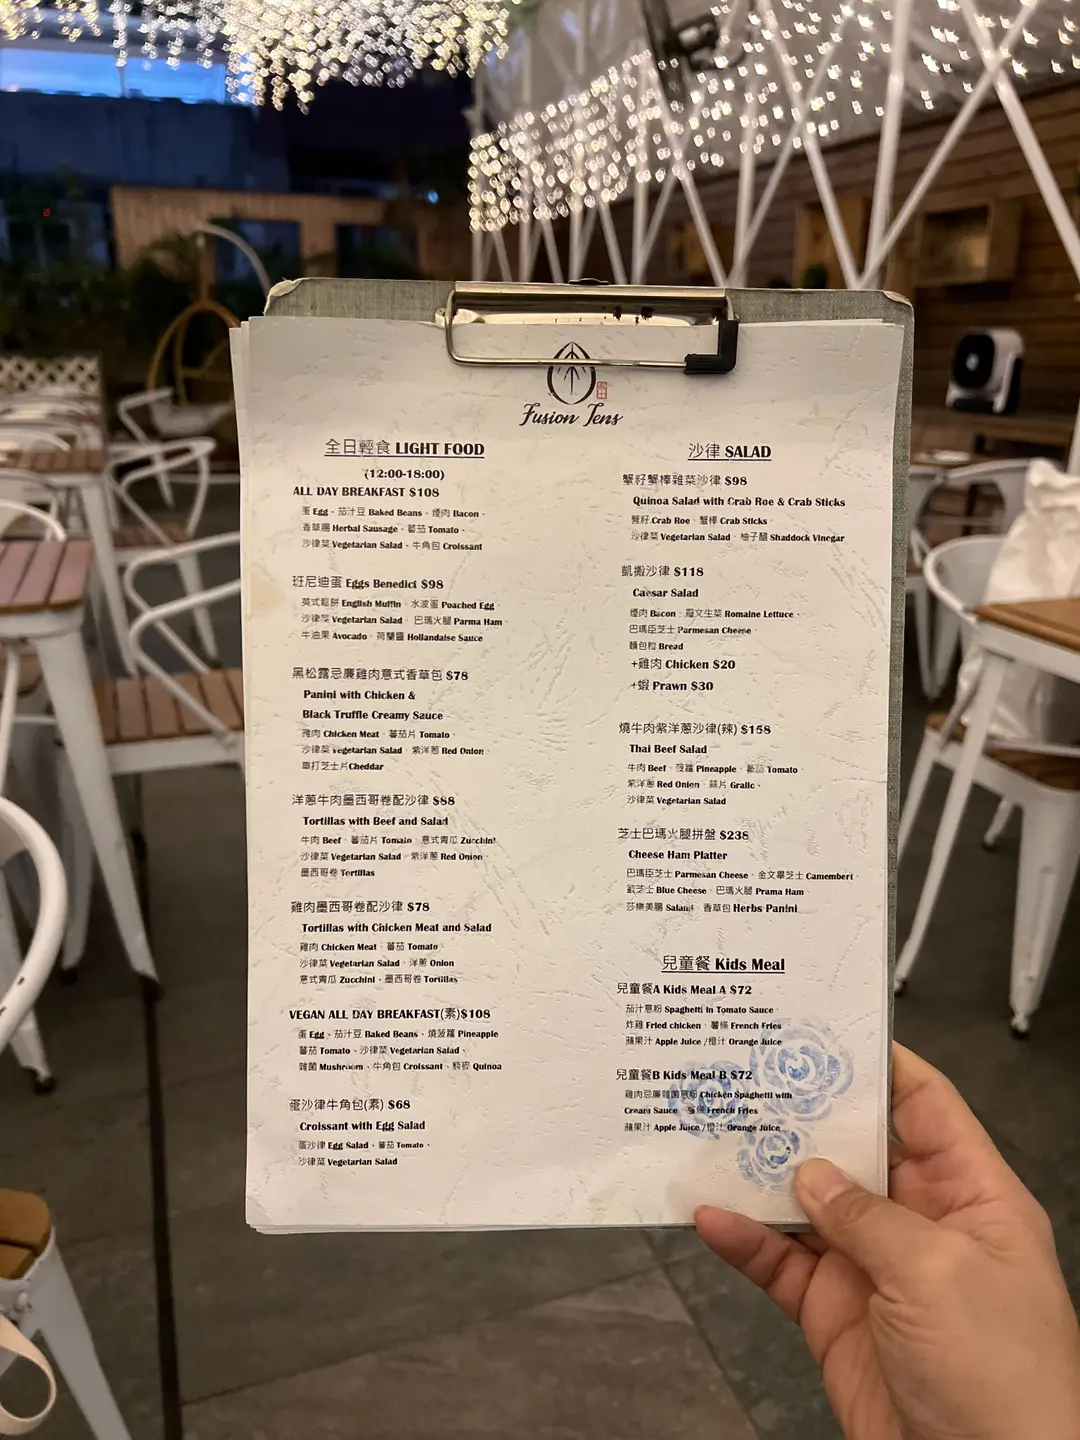 Fusion Tens
全日輕食 LIGHT FOOD
(12:00-18:00)
ALL DAY BREAKFAST $108
蛋 Egg、茄汁豆 Baked Beans、煙肉 Bacon、
香草腸 Herbal Sausage、蕃茄 Tomato、
沙律菜 Vegetarian Salad、牛角包 Croissant
班尼迪蛋 Eggs Benedict $98
英式鬆餅 English Muffin、水波蛋 Poached Egg、
沙律菜 Vegetarian Salad、巴瑪火腿 Parma Ham、
牛油果 Avocado、荷蘭醬 Hollandaise Sauce
黑松露忌廉雞肉意式香草包 $78
Panini with Chicken &
Black Truffle Creamy Sauce
雞肉 Chicken Meat、蕃茄片 Tomato、
沙律菜 Vegetarian Salad、紫洋蔥 Red Onion、
車打芝士片Cheddar
洋蔥牛肉墨西哥卷配沙律 $88
Tortillas with Beef and Salad
牛肉 Beef、蕃茄片 Tomato、意式青瓜 Zucchini
沙律菜 Vegetarian Salad、紫洋蔥 Red Onion、
墨西哥卷 Tortillas
雞肉墨西哥卷配沙律 $78
Tortillas with Chicken Meat and Salad
雞肉 Chicken Meat、蕃茄 Tomato、
沙律菜 Vegetarian Salad、洋蔥 Onion
意式青瓜 Zucchini、墨西哥卷 Tortillas
VEGAN ALL DAY BREAKFAST(素)$108
蛋 Egg、茄汁豆 Baked Beans、燒菠蘿 Pineapple
蕃茄 Tomato、沙律菜 Vegetarian Salad、
雜菌 Mushroom、牛角包 Croissant、藜麥 Quinoa
蛋沙律牛角包(素) $68
Croissant with Egg Salad
蛋沙律 Egg Salad、蕃茄 Tomato、
沙律菜 Vegetarian Salad
沙律 SALAD
蟹籽蟹棒雜菜沙律 $98
Quinoa Salad with Crab Roe & Crab Sticks
蟹籽 Crab Roe、蟹棒 Crab Sticks、
沙律菜 Vegetarian Salad、柚子醋 Shaddock Vinegar
凱撒沙律 $118
Caesar Salad
煙肉 Bacon、羅文生菜 Romaine Lettuce、
巴瑪臣芝士 Parmesan Cheese、
麵包粒 Bread
+雞肉 Chicken $20
+蝦 Prawn $30
燒牛肉紫洋蔥沙律(辣) $158
Thai Beef Salad
牛肉 Beef、菠蘿 Pineapple、蕃茄 Tomato、
紫洋蔥 Red Onion、蒜片 Gralic、
沙律菜 Vegetarian Salad
芝士巴瑪火腿拼盤 $238
Cheese Ham Platter
巴瑪臣芝士 Parmesan Cheese、金文畢芝士 Camembert、
藍芝士 Blue Cheese、巴瑪火腿 Prama Ham、
莎樂美腸 Salami、香草包 Herbs Panini
兒童餐 Kids Meal
兒童餐A Kids Meal A $72
茄汁意粉 Spaghetti in Tomato Sauce、
炸雞 Fried chicken、薯條 French Fries、
蘋果汁 Apple Juice /橙汁 Orange Juice
兒童餐B Kids Meal B $72
雞肉忌廉雜菌意粉 Chicken Spaghetti with
Cream Sauce、薯條 French Fries
蘋果汁 Apple Juice /橙汁 Orange Juice